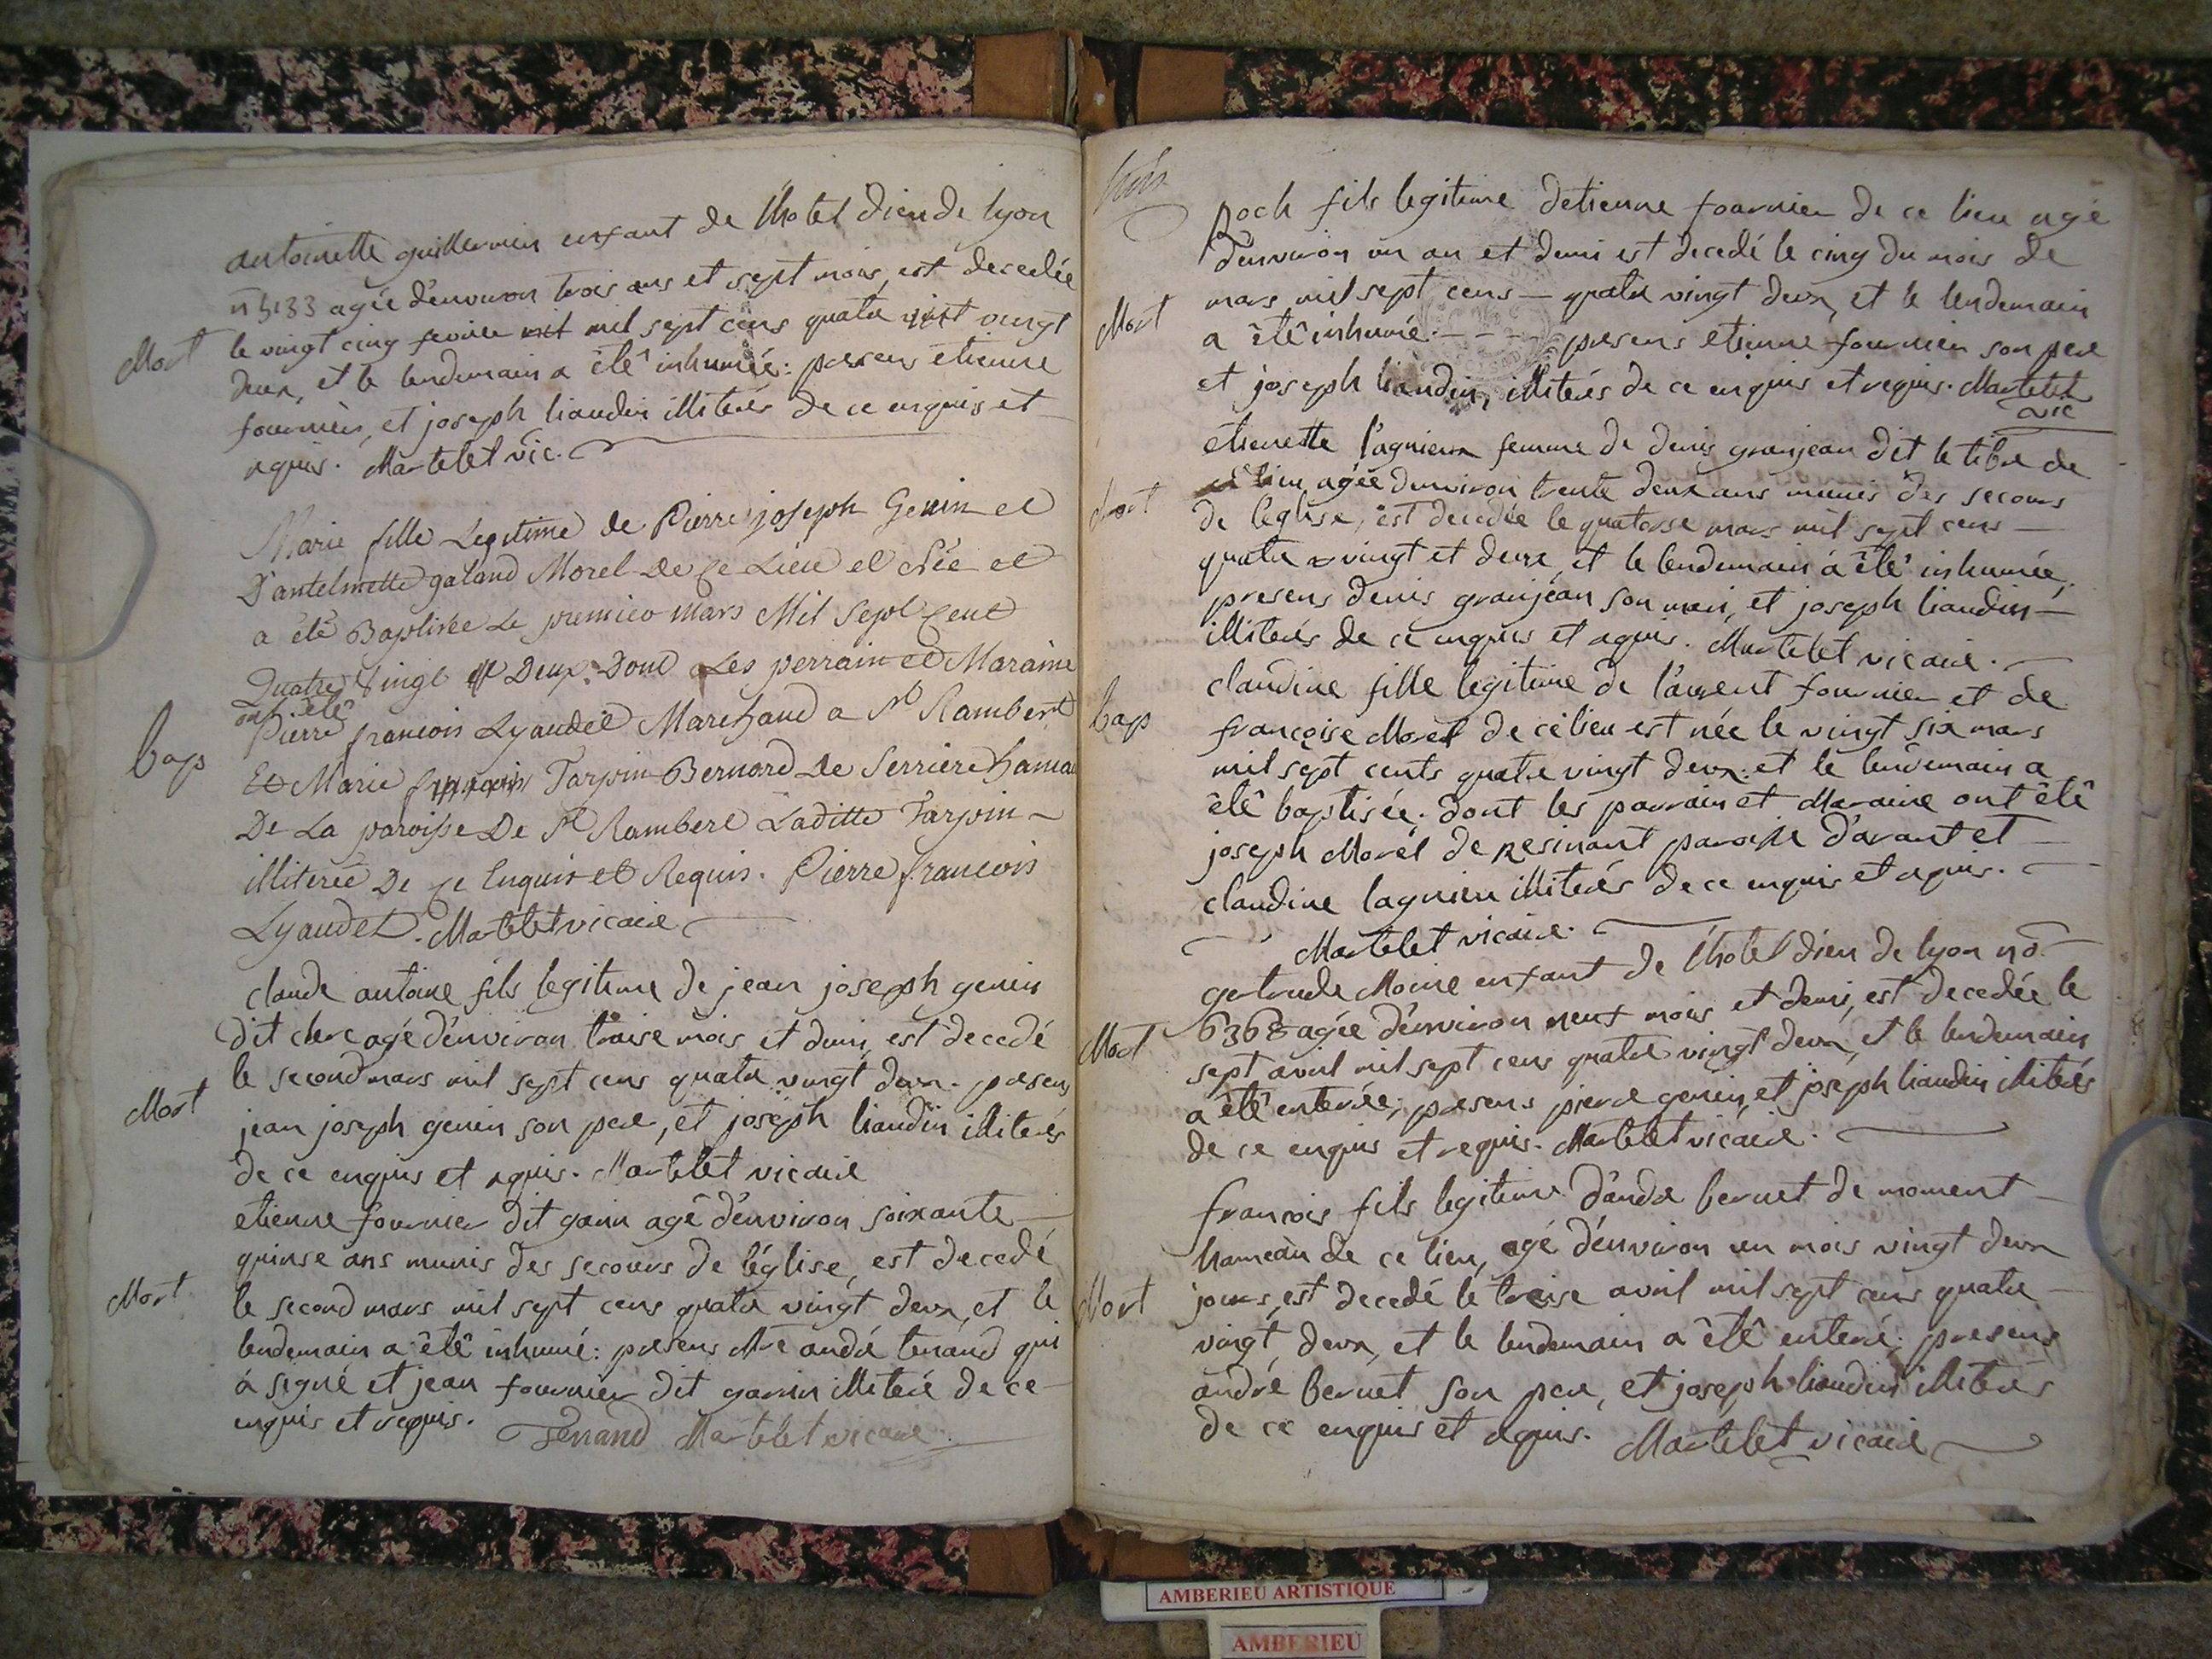 antoinette guillermin enfant de l'hotel dieu de lyon
n 5133 agée d'environ trois ans et sept mois, est decedée
Mort
le vingt cinq fevrier mil sept cens quatre vingt
deux, et le lendemain a êtê inhumée: presens etienne
fournier, et joseph liaudin illiterés de ce enquis et
requis. Martelet vic.
Marie fille Legitime de Pierre joseph Genin et
D'antelmette galand Morel De ce Lieu et Née et
a êtê Baptisée Le premier Mars Mil Sept Cent
Quatre Vingt Deux. Dont Les perrain et Maraine
ont êtê
Bap
Pierre francois Lyaudet Marchand a St Rambert
Et Marie Tarpin Bernard De Serriere hamau
De La paroisse De St Rambert Laditte Tarpin
illiterée De Ce Enquis et Requis. Pierre francois
Lyaudet. Martelet vicaire
claude antoine fils legitime de jean joseph genin
dit clerc agé d'environ traise mois et demi, est decedé
Mort
le second mars mil sept cens quatre vingt deux. presens
jean joseph genin son pere, et joseph liaudin illiterés
de ce enquis et requis. Martelet vicaire
etienne fournier dit garin agé d'environ soixante
quinse ans munis des secours de l'église, est decedé
Mort
le second mars mil sept cens quatre vingt deux, et le
lendemain a êtê inhumé: presens Mre andré tenand qui
à signé et jean fournier dit garin illiteré de ce
enquis et requis.
Tenand Martelet vicaire
Roch fils legitime detienne fournier de ce lieu agé
d'environ un an et demi est decedé le cinq du mois de
Mort
mars mil sept cens quatre vingt deux, et le lendemain
a êtê inhumé. presens etienne fournier son pere
et joseph liaudin, illiterés de ce enquis et requis. Martelet
vic
etienette l'agnieux femme de denis granjean dit le tibre de
Mort
ce lieu agée d'environ trente deux ans munis des secours
de l'eglise, est decedée le quatorse mars mil sept cens
quatre vingt et deux, et le lendemain à êtê inhumée;
presens denis granjean son mari, et joseph liaudin
illiterés de ce enquis et requis. Martelet vicaire.
Bap
claudine fille legitime de laurent fournier et de
françoise Morel de ce lieu est née le vingt six mars
mil sept cents quatre vingt deux: et le lendemain a
êtê baptisée. dont les parrain et Maraine ont êtê
joseph Morel de resinant paroisse d'arant et
claudine lagnieu illiterés de ce enquis et requis.
Martelet vicaire.
gertrude Moine enfant de l'hotel dieu de lyon no
Mort
6368 agée d'environ neuf mois et demi, est decedée le
sept avril mil sept cens quatre vingt deux, et le lendemain
a êtê enterée; presens pierre genin, et joseph liaudin illiterés
de ce enquis et requis. Martelet vicaire.
francois fils legitime d'andré bernet de moment
hameau de ce lieu, agé d'environ un mois vingt deux
Mort
jours, est decedé le treise avril mil sept cens quatre
vingt deux, et le lendemain a êtê enteré; presens
andré bernet son pere, et joseph liaudin illiterés
de ce enquis et requis. Martelet vicaire
AMBERIEU ARTISTIQUE
AMBERIEU